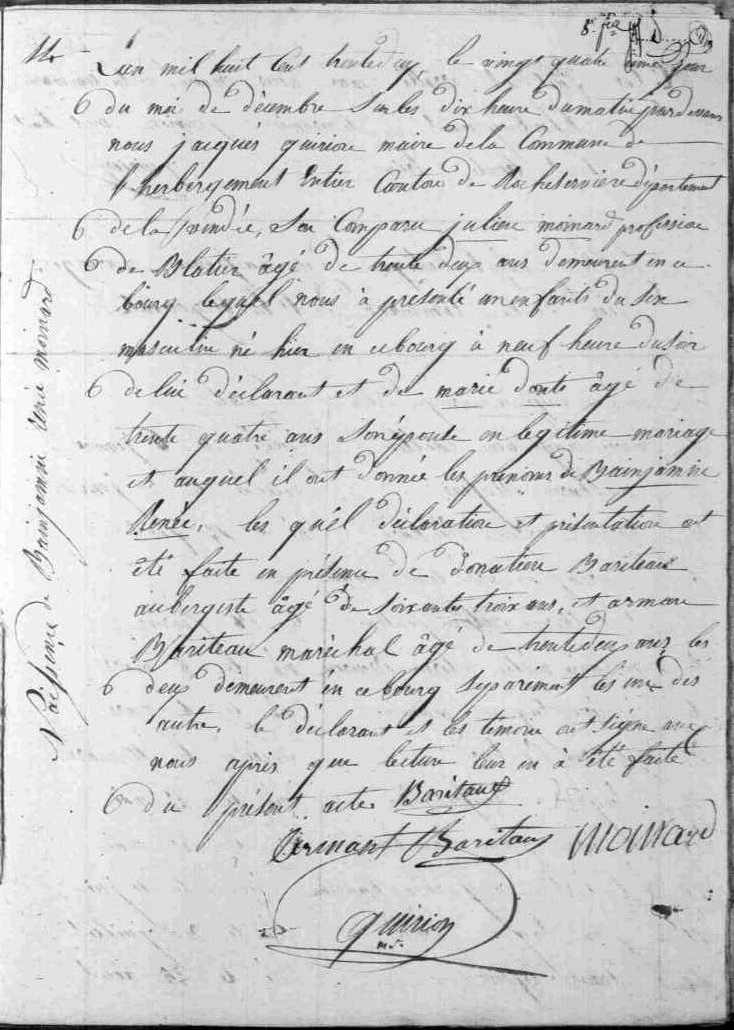 L'an mil huit cent trente deux le vingt quatrieme jour
du moi de décembre Sur les dix heure du matin par devant
nous jacques quirion maire de la Commune de
l'herbergement Entier Canton de Rocheservière département
de la vendée, son Comparu julien moinard profession
de Blatier âgé de trente deux ans demeurent en ce
bourg lequel nous à présenté un enfants du sexe
masculin né hier en ce bourg à neuf heure du soir
de lui déclarant et de marie donte âgé de
trente quatre ans son épouse en legitime mariage
et auquel il ont donnée les prenoms de Bainjamine
Renée, les quél déclaration et présentation ont
été faite en présence de donatien Bariteau
aubergiste âgé de soixante troix ans, et armant
Bariteau maréchal âgé de trente deux ans les
deux demeurent en ce bourg séparément les un des
autre, le déclarant et les temoin ont signé avec
nous après que lecture leur en à été faite
du présent acte. Baritaux
Armant Baritaux moinard
quirion
Naissence de Bainjamine René moinard